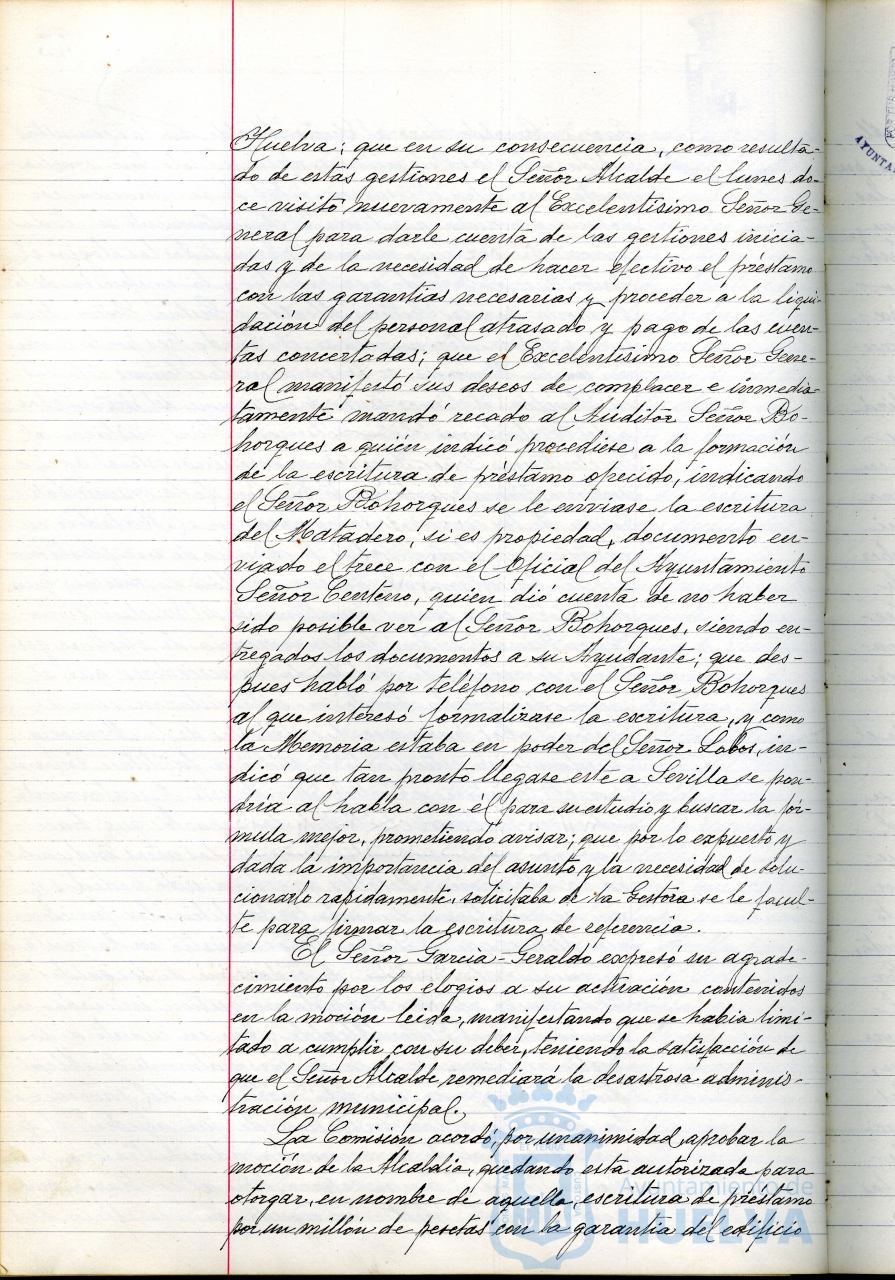 Huelva; que en su consecuencia, como resulta-
do de estas gestiones el Señor Alcalde el lunes do-
ce visitó nuevamente al Excelentísimo Señor Ge-
neral para darle cuenta de las gestiones inicia-
das y de la necesidad de hacer efectivo el préstamo
con las garantías necesarias y proceder a la liqui-
dación del personal atrasado y pago de las cuen-
tas concertadas; que el Excelentísimo Señor Gene-
ral manifestó sus deseos de complacer e inmedia-
tamente mandó recado al Auditor Señor Bo-
horques a quién indicó procediese a la formación
de la escritura de préstamo ofrecido, indicando
el Señor Bohorques se le enviase la escritura
del Matadero, si es propiedad, documento en-
viado el trece con el Oficial del Ayuntamiento
Señor Centeno, quien dió cuenta de no haber
sido posible ver al Señor Bohorques, siendo en-
tregados los documentos a su Ayudante; que des-
pues habló por teléfono con el Señor Bohorques
al que interesó formalizase la escritura, y como
la Memoria estaba en poder del Señor Lobos, in-
dicó que tan pronto llegase este a Sevilla se pon-
dría al habla con él para su estudio y buscar la fór-
mula mejor, prometiendo avisar; que por lo expuesto y
dada la importancia del asunto y la necesidad de solu-
cionarlo rapidamente, solicitaba de la Gestora se le facul-
te para firmar la escritura de referencia.
El Señor Garcia-Geraldo expresó su agrade-
cimiento por los elogios a su actuación contenidos
en la moción leida, manifestando que se habia limi-
tado a cumplir con su deber, teniendo la satisfacción de
que el Señor Alcalde remediará la desastrosa adminis-
tración municipal.
La Comisión acordó, por unanimidad, aprobar la
moción de la Alcaldia, quedando esta autorizada para
otorgar, en nombre de aquella, escritura de préstamo
por un millón de pesetas con la garantia del edificio
Ayuntamiento de
HUELVA
AYUNTA